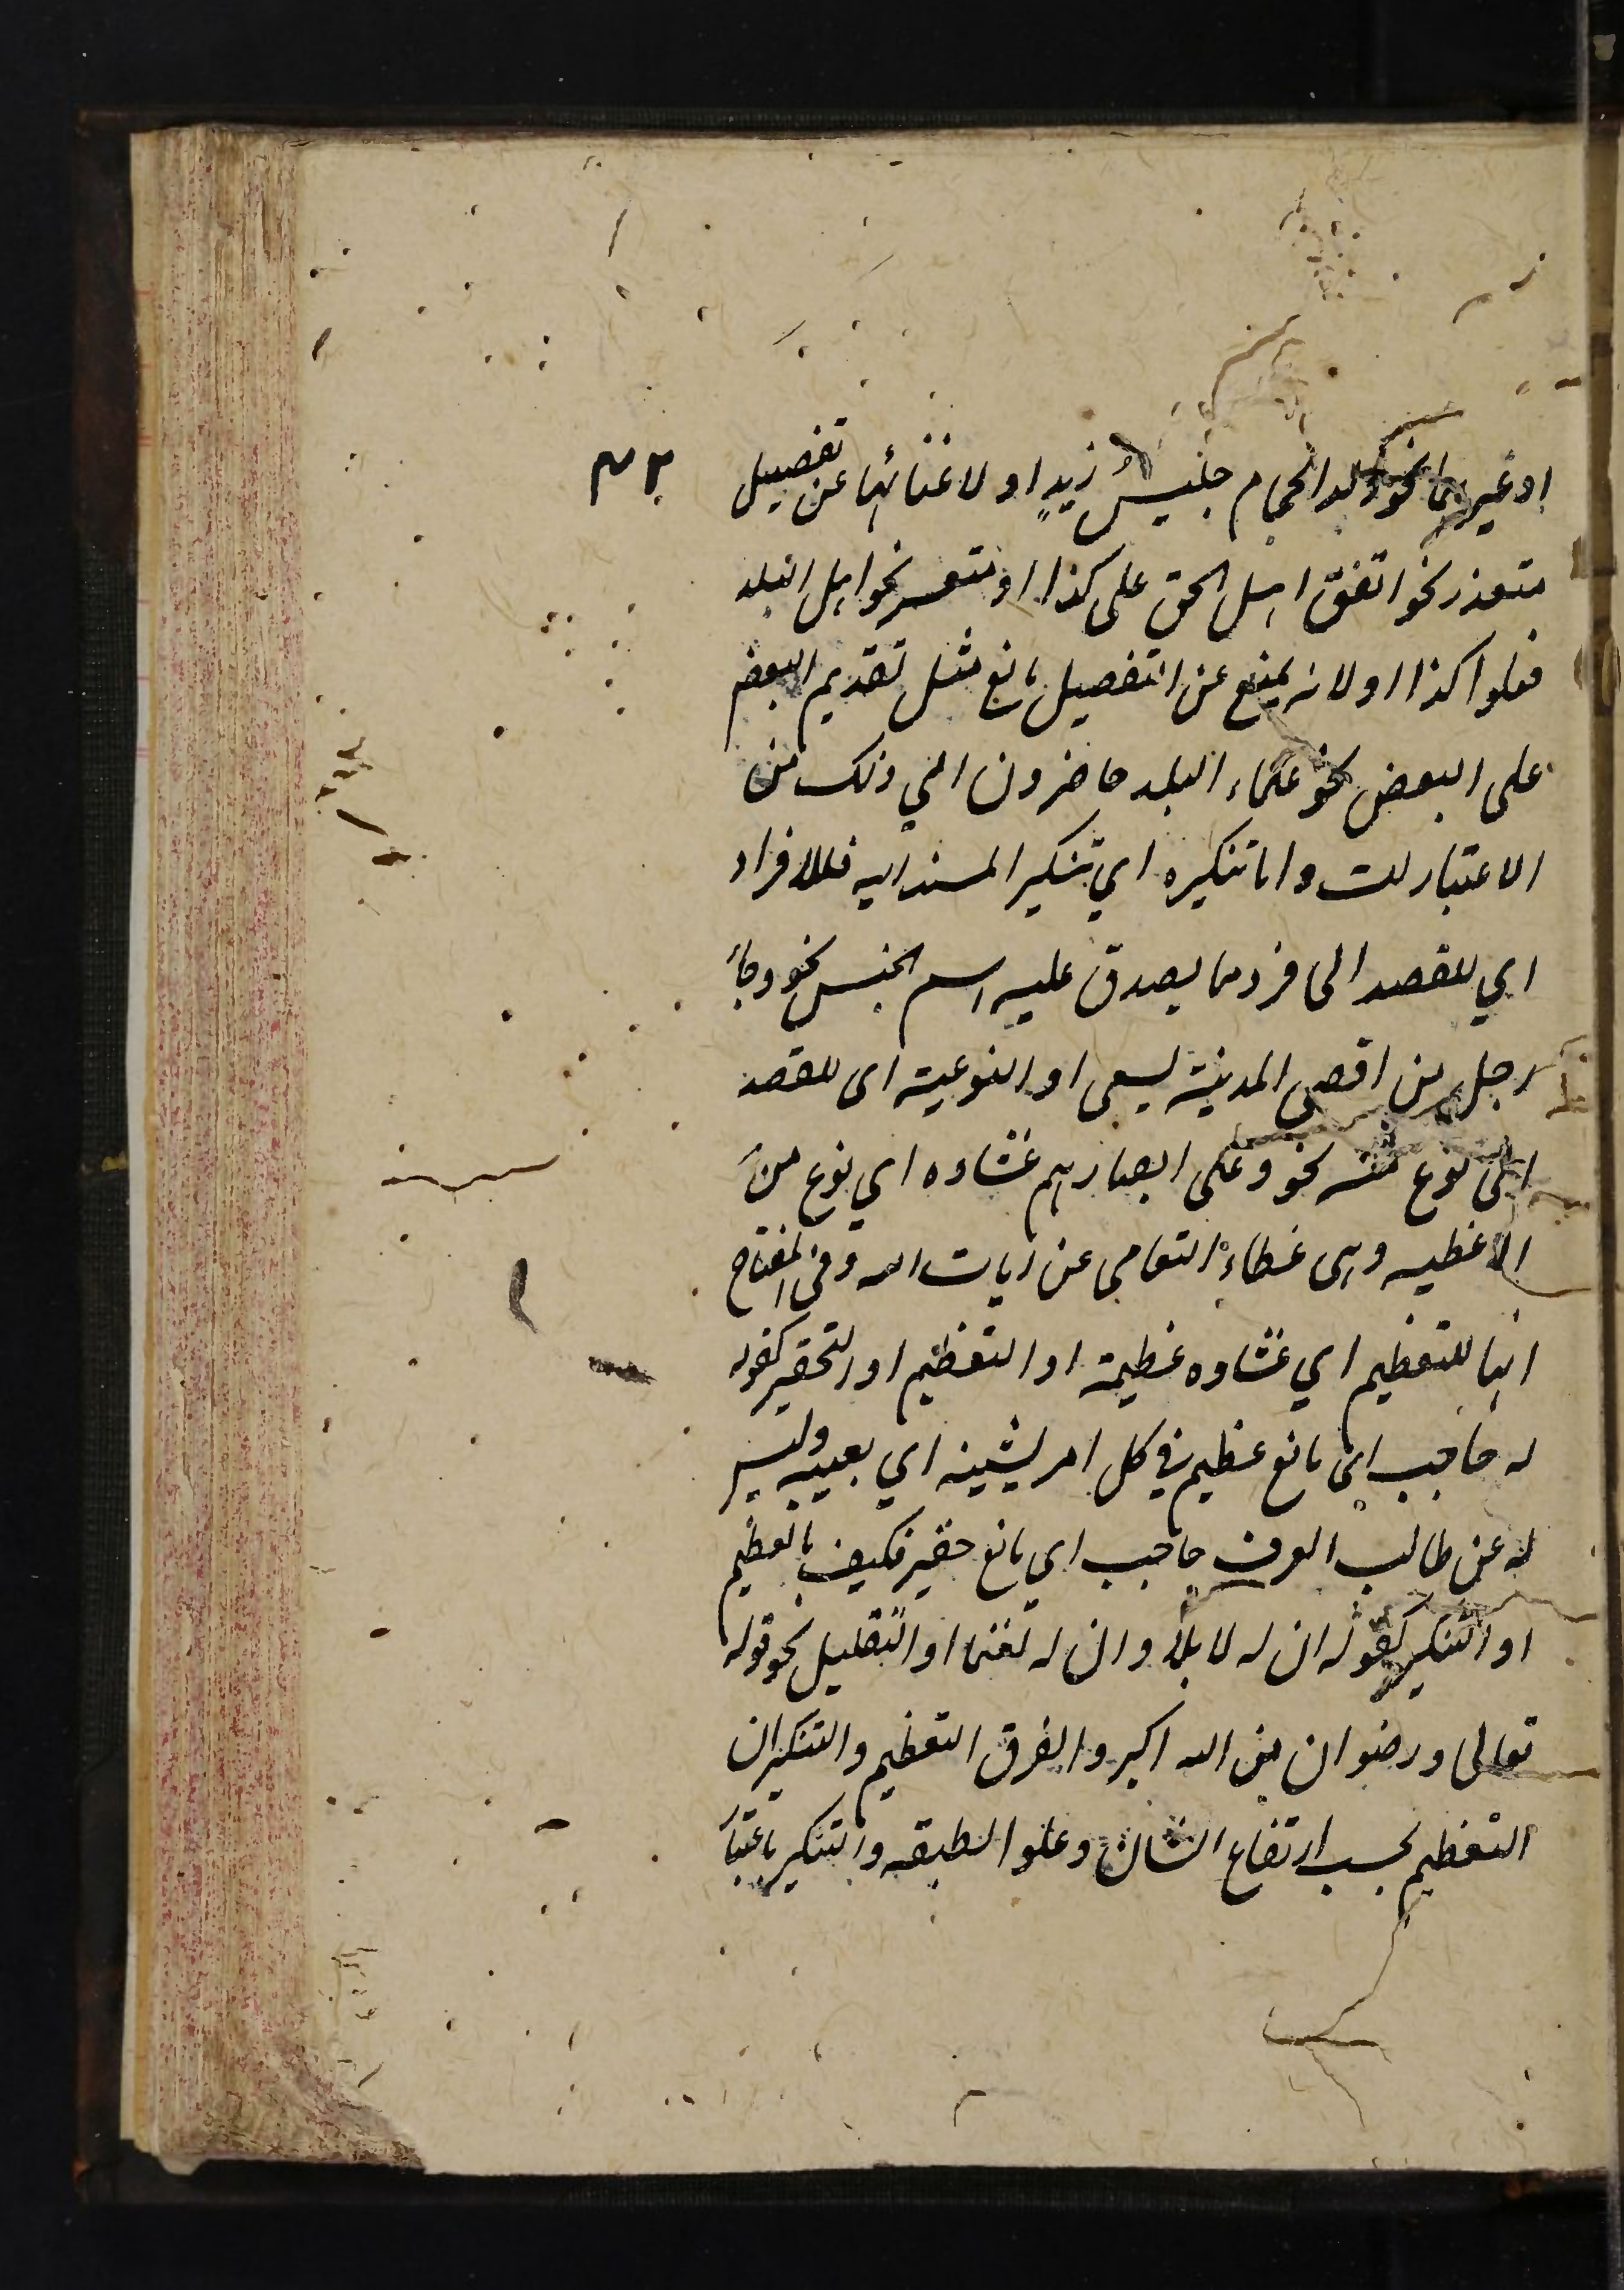 او غيرهما نحو ولد الحجام جليسُ زيدٍ او لاغنائها عن تفصيل
متعذر نحو اتفق اهل الحق على كذا او متعسر نحو اهل البلد
فعلوا كذا او لانه يمنع عن التفصيل مانع مثل تقديم البعض
على البعض نحو علماء البلد حاضرون الى ذلك من
الاعتبارات واما تنكيره اي تنكير المسند اليه فللافراد
اي للقصد الى فرد مما يصدق عليه اسم الجنس نحو وجاء
رجل من اقصى المدينة يسعى او النوعية اى للقصد
الى نوع منه نحو وعلى ابصارهم غشاوه اي نوع من
الاغطيه وهى غطاء التعامى عن ايات الله وفي المفتاح
انها للتعظيم اي غشاوه عظيمة او التعظيم او التحقير كقوله
له حاجب اى مانع عظيم في كل امر يشينه اي يعيبه وليس
له عن طالب العرف حاجب اى مانع حقير فكيف بالعظيم
او التكثير كقوله ان له لابلا وان له لغنما او التقليل نحو قوله
تعالى ورضوان من الله اكبر والفرق التعظيم والتكثير ان
التعظيم بحسب ارتفاع الشان وعلو الطبقه والتكثير باعتبار